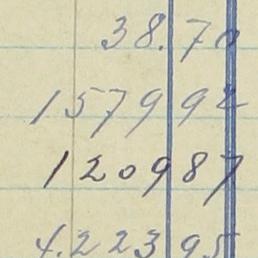 38.70
157992
120987
4.22395